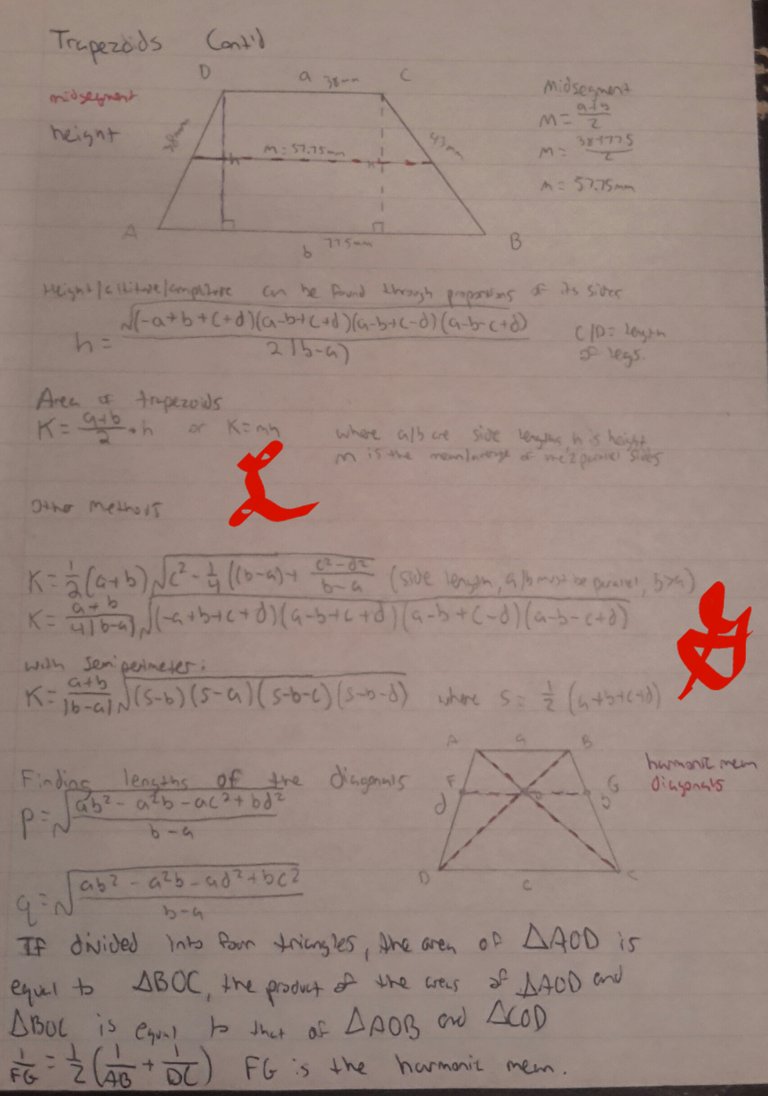 Trapezoids Cont'd
D a 38mm C
midsegment
height
38mm
h
m = 57.75mm
43mm
A b 77.5mm B
Midsegment
M = a+b/2
M = 38+77.5/2
m = 57.75mm
Height/altitude/amplitude can be found through proportions of its sides
h = √(-a+b+c+d)(a-b+c+d)(a-b+c-d)(a-b-c+d) / 2|b-a|
C/D = length of legs.
Area of trapezoids
K = a+b/2 • h or K = mh where a/b are side lengths, h is height
m is the mean/average of the 2 parallel sides
L
Other methods
K = 1/2 (a+b) √c² - 1/4 ((b-a) + c²-d²/b-a (side length, a/b must be parallel, b>a)
K = a+b/4|b-a| √(-a+b+c+d)(a-b+c+d)(a-b+c-d)(a-b-c+d)
with semiperimeter:
K = a+b/|b-a| √(s-b)(s-a)(s-b-c)(s-b-d) where s = 1/2 (a+b+c+d)
Finding lengths of the diagonals
p = √ab² - a²b - ac² + bd² / b-a
q = √ab² - a²b - ad² + bc² / b-a
A a B
F G
d b
D c C
harmonic mean
diagonals
If divided into four triangles, the area of △AOD is
equal to △BOC, the product of the areas of △AOD and
△BOC is equal to that of △AOB and △COD
1/FG = 1/2 (1/AB + 1/DC) FG is the harmonic mean.